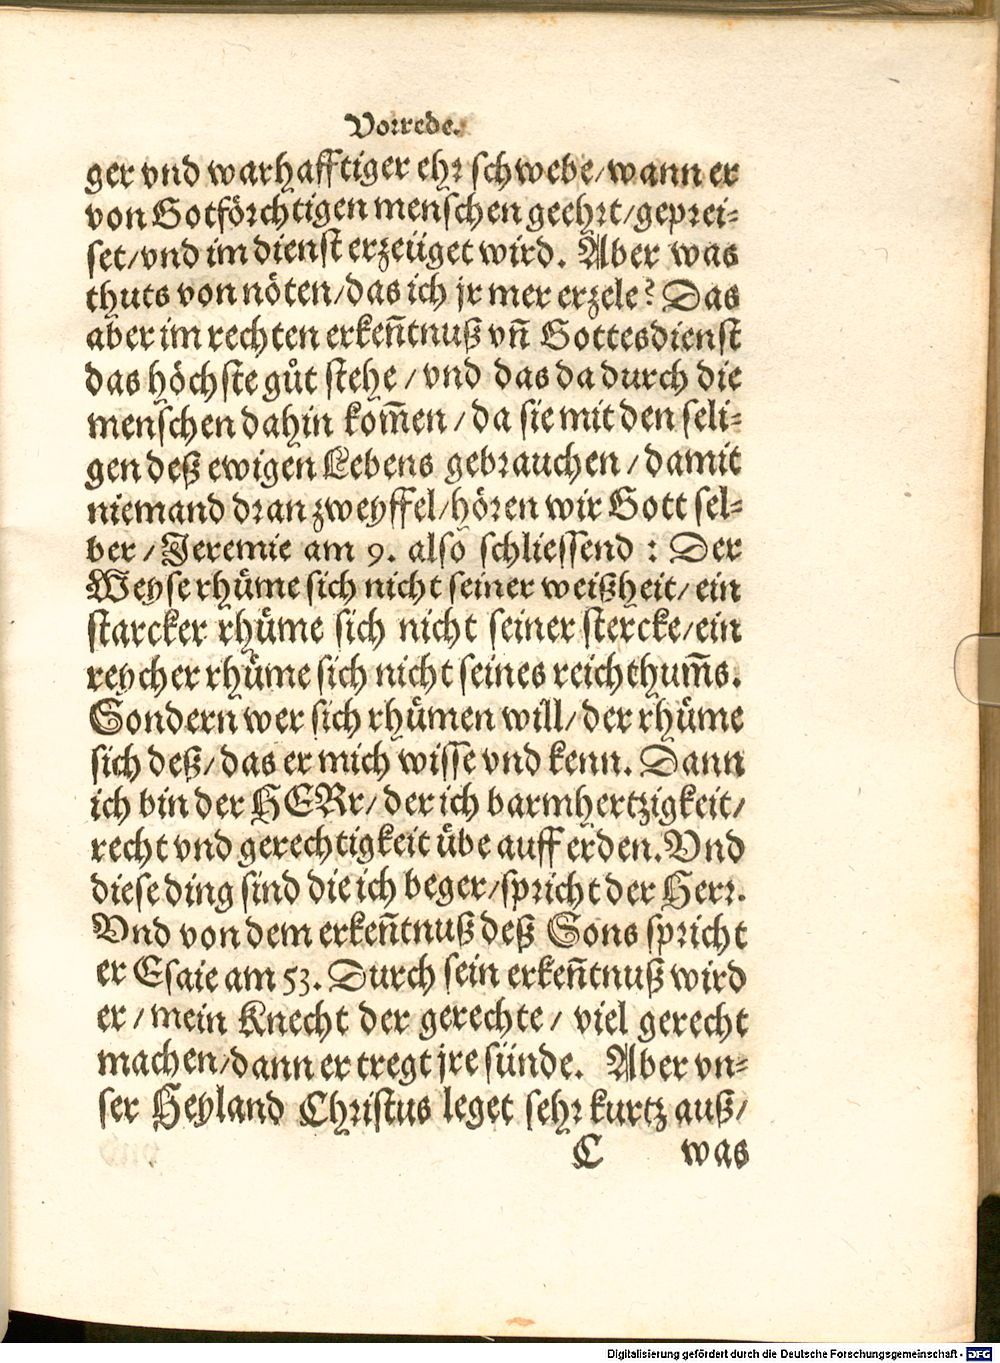 Vorrede.
ger vnd warhafftiger ehr schwebe/wann er
von Gotförchtigen menschen geehrt/geprei=
set/vnd im dienst erzeüget wird. Aber was
thuts von nöten/das ich jr mer erzele? Das
aber im rechten erkeñtnuß vñ Gottesdienst
das höchste gůt stehe/vnd das dadurch die
menschen dahin kom̃en/da sie mit den seli=
gen deß ewigen Lebens gebrauchen/damit
niemand dran zweyffel/hören wir Gott sel=
ber/Jeremie am 9. also schliessend: Der
Weyse rhüme sich nicht seiner weißheit/ein
starcker rhüme sich nicht seiner stercke/ein
reycher rhüme sich nicht seines reichthum̃s.
Sondern wer sich rhümen will/der rhüme
sich deß/das er mich wisse vnd kenn. Dann
ich bin der HERr/der ich barmhertzigkeit/
recht vnd gerechtigkeit übe auff erden. Vnd
diese ding sind die ich beger/spricht der Herr.
Vnd von dem erkeñtnuß deß Sons spricht
er Esaie am 53. Durch sein erkeñtnuß wird
er/mein Knecht der gerechte/viel gerecht
machen/dann er tregt jre sünde. Aber vn=
ser Heyland Christus leget sehr kurtz auß/
C was
Digitalisierung gefördert durch die Deutsche Forschungsgemeinschaft - DFG